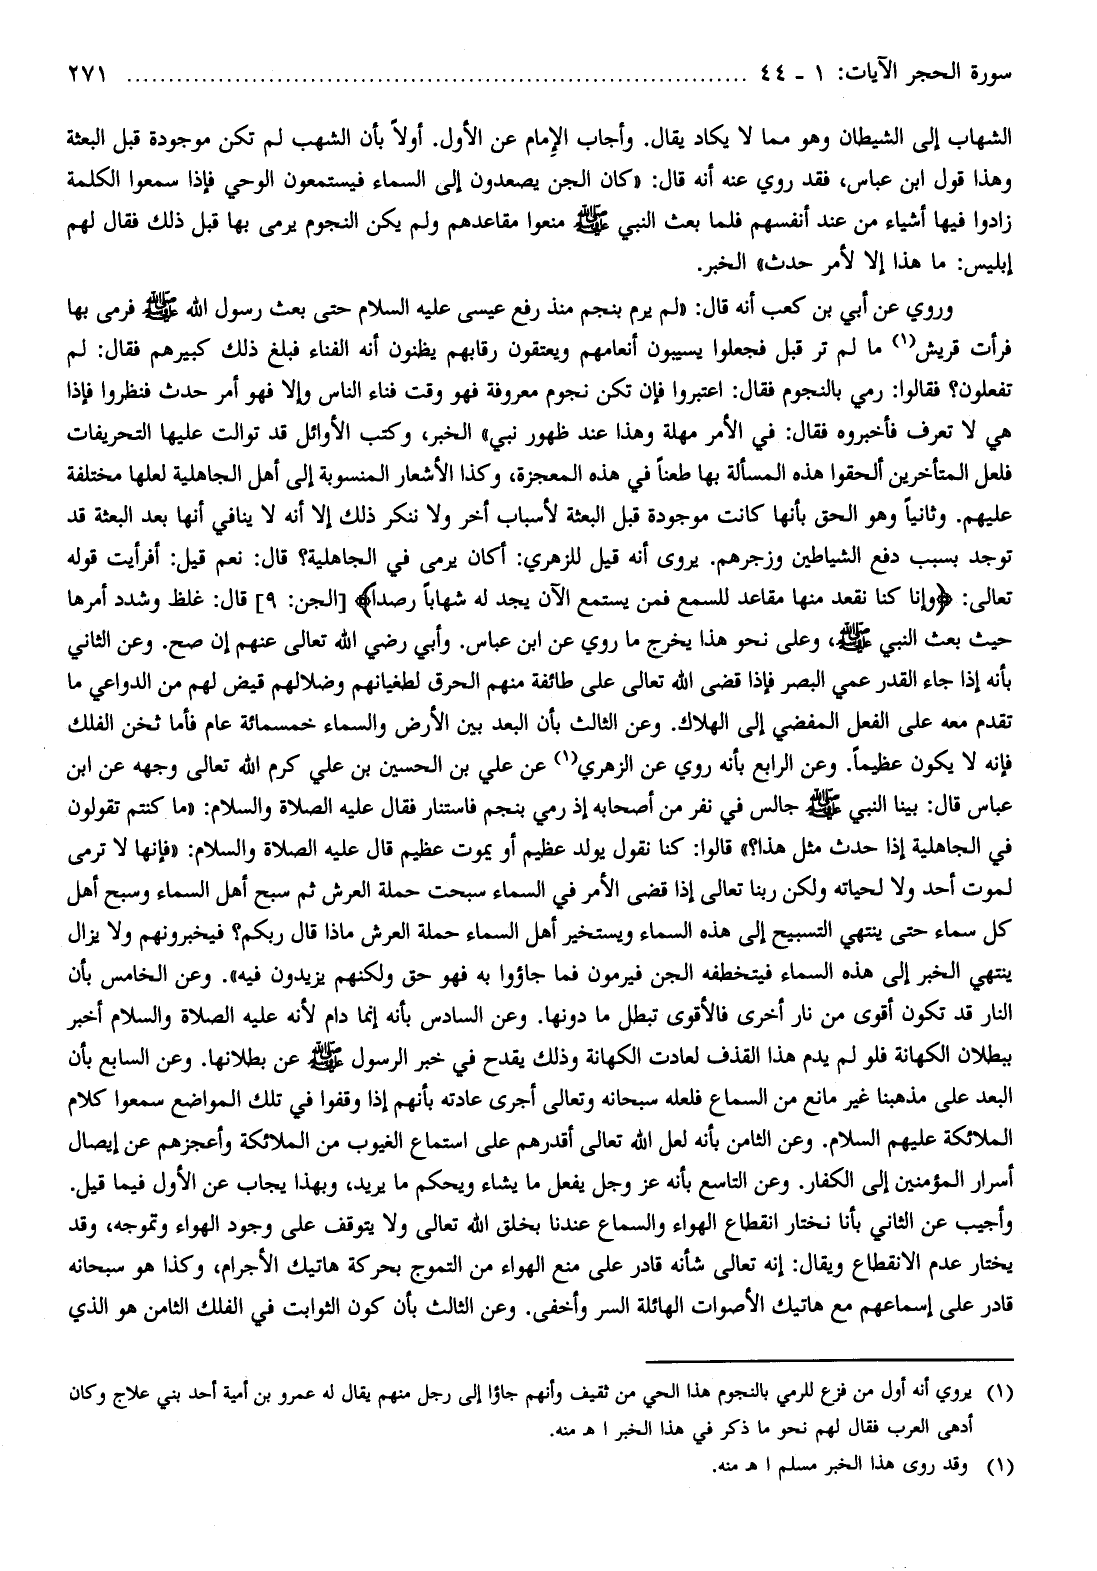 سورة الحجر الآيات: ١ - ٤٤ ........................................................................... ٢٧١
الشهاب إلى الشيطان وهو مما لا يكاد يقال. وأجاب الإمام عن الأول. أولاً بأن الشهب لم تكن موجودة قبل البعثة
وهذا قول ابن عباس، فقد روي عنه أنه قال: «كان الجن يصعدون إلى السماء فيستمعون الوحي فإذا سمعوا الكلمة
زادوا فيها أشياء من عند أنفسهم فلما بعث النبي ﷺ منعوا مقاعدهم ولم يكن النجوم يرمى بها قبل ذلك فقال لهم
إبليس: ما هذا إلا لأمر حدث» الخبر.
وروي عن أبي بن كعب أنه قال: «لم يرم بنجم منذ رفع عيسى عليه السلام حتى بعث رسول الله ﷺ فرمى بها
فرأت قريش(١) ما لم تر قبل فجعلوا يسيبون أنعامهم ويعتقون رقابهم يظنون أنه الفناء فبلغ ذلك كبيرهم فقال: لم
تفعلون؟ فقالوا: رمي بالنجوم فقال: اعتبروا فإن تكن نجوم معروفة فهو وقت فناء الناس وإلا فهو أمر حدث فنظروا فإذا
هي لا تعرف فأخبروه فقال: في الأمر مهلة وهذا عند ظهور نبي» الخبر، وكتب الأوائل قد توالت عليها التحريفات
فلعل المتأخرين ألحقوا هذه المسألة بها طعناً في هذه المعجزة، وكذا الأشعار المنسوبة إلى أهل الجاهلية لعلها مختلفة
عليهم. وثانياً وهو الحق بأنها كانت موجودة قبل البعثة لأسباب أخر ولا ننكر ذلك إلا أنه لا ينافي أنها بعد البعثة قد
توجد بسبب دفع الشياطين وزجرهم. يروى أنه قيل للزهري: أكان يرمى في الجاهلية؟ قال: نعم قيل: أفرأيت قوله
تعالى: ﴿وإنا كنا نقعد منها مقاعد للسمع فمن يستمع الآن يجد له شهاباً رصدا﴾ [الجن: ٩] قال: غلظ وشدد أمرها
حيث بعث النبي ﷺ، وعلى نحو هذا يخرج ما روي عن ابن عباس. وأبي رضي الله تعالى عنهم إن صح. وعن الثاني
بأنه إذا جاء القدر عمي البصر فإذا قضى الله تعالى على طائفة منهم الحرق لطغيانهم وضلالهم قيض لهم من الدواعي ما
تقدم معه على الفعل المفضي إلى الهلاك. وعن الثالث بأن البعد بين الأرض والسماء خمسمائة عام فأما ثخن الفلك
فإنه لا يكون عظيماً. وعن الرابع بأنه روي عن الزهري(١) عن علي بن الحسين بن علي كرم الله تعالى وجهه عن ابن
عباس قال: بينا النبي ﷺ جالس في نفر من أصحابه إذ رمي بنجم فاستنار فقال عليه الصلاة والسلام: «ما كنتم تقولون
في الجاهلية إذا حدث مثل هذا؟» قالوا: كنا نقول يولد عظيم أو يموت عظيم قال عليه الصلاة والسلام: «فإنها لا ترمى
لموت أحد ولا لحياته ولكن ربنا تعالى إذا قضى الأمر في السماء سبحت حملة العرش ثم سبح أهل السماء وسبح أهل
كل سماء حتى ينتهي التسبيح إلى هذه السماء ويستخير أهل السماء حملة العرش ماذا قال ربكم؟ فيخبرونهم ولا يزال
ينتهي الخبر إلى هذه السماء فيتخطفه الجن فيرمون فما جاؤوا به فهو حق ولكنهم يزيدون فيه». وعن الخامس بأن
النار قد تكون أقوى من نار أخرى فالأقوى تبطل ما دونها. وعن السادس بأنه إنما دام لأنه عليه الصلاة والسلام أخبر
ببطلان الكهانة فلو لم يدم هذا القذف لعادت الكهانة وذلك يقدح في خبر الرسول ﷺ عن بطلانها. وعن السابع بأن
البعد على مذهبنا غير مانع من السماع فلعله سبحانه وتعالى أجرى عادته بأنهم إذا وقفوا في تلك المواضع سمعوا كلام
الملائكة عليهم السلام. وعن الثامن بأنه لعل الله تعالى أقدرهم على استماع الغيوب من الملائكة وأعجزهم عن إيصال
أسرار المؤمنين إلى الكفار. وعن التاسع بأنه عز وجل يفعل ما يشاء ويحكم ما يريد، وبهذا يجاب عن الأول فيما قيل.
وأجيب عن الثاني بأنا نختار انقطاع الهواء والسماع عندنا بخلق الله تعالى ولا يتوقف على وجود الهواء وتموجه، وقد
يختار عدم الانقطاع ويقال: إنه تعالى شأنه قادر على منع الهواء من التموج بحركة هاتيك الأجرام، وكذا هو سبحانه
قادر على إسماعهم مع هاتيك الأصوات الهائلة السر وأخفى. وعن الثالث بأن كون الثوابت في الفلك الثامن هو الذي
(١) يروي أنه أول من فزع للرمي بالنجوم هذا الحي من ثقيف وأنهم جاؤا إلى رجل منهم يقال له عمرو بن أمية أحد بني علاج وكان
أدهى العرب فقال لهم نحو ما ذكر في هذا الخبر ا هـ منه.
(١) وقد روى هذا الخبر مسلم ا هـ منه.